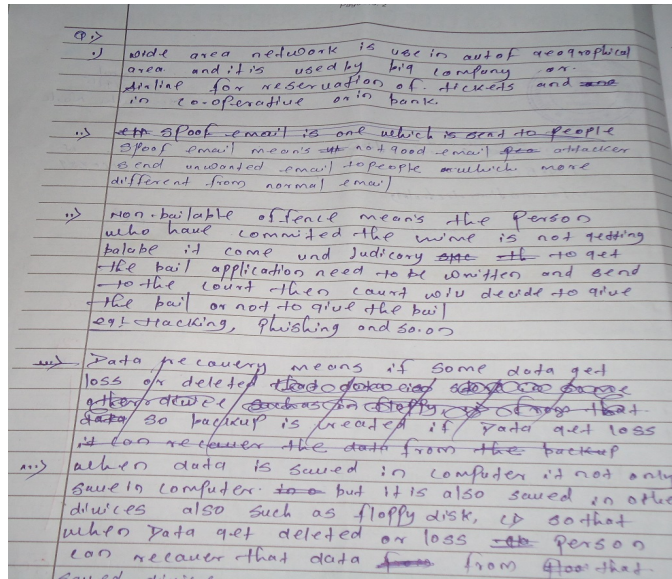 Q.>
.) wide area network is use in autof geographical
area and it is used by big company or.
Airline for reservation of. tickets and
in co-operative or in bank.
..) Spoof email is one which is send to people
Spoof email mean's not good email attacker
send unwanted email to people which more
different from normal email
Non-bailable offence mean's the person
who have commited the crime is not getting
it come und Judicory to get
the bail application need to be written and send
to the court then court will decide to give
the bail or not to give the bail
eg! Hacking, Phishing and so.on
Data recavery means if some data get
loss or deleted
other divice
data so backup is created if Data get loss
it can recaver the data from the backup
when data is saved in computer it not only
save in computer. but it is also saved in othe
divices also such as floppy disk, CD so that
when Data get deleted or loss person
can recaver that data from that